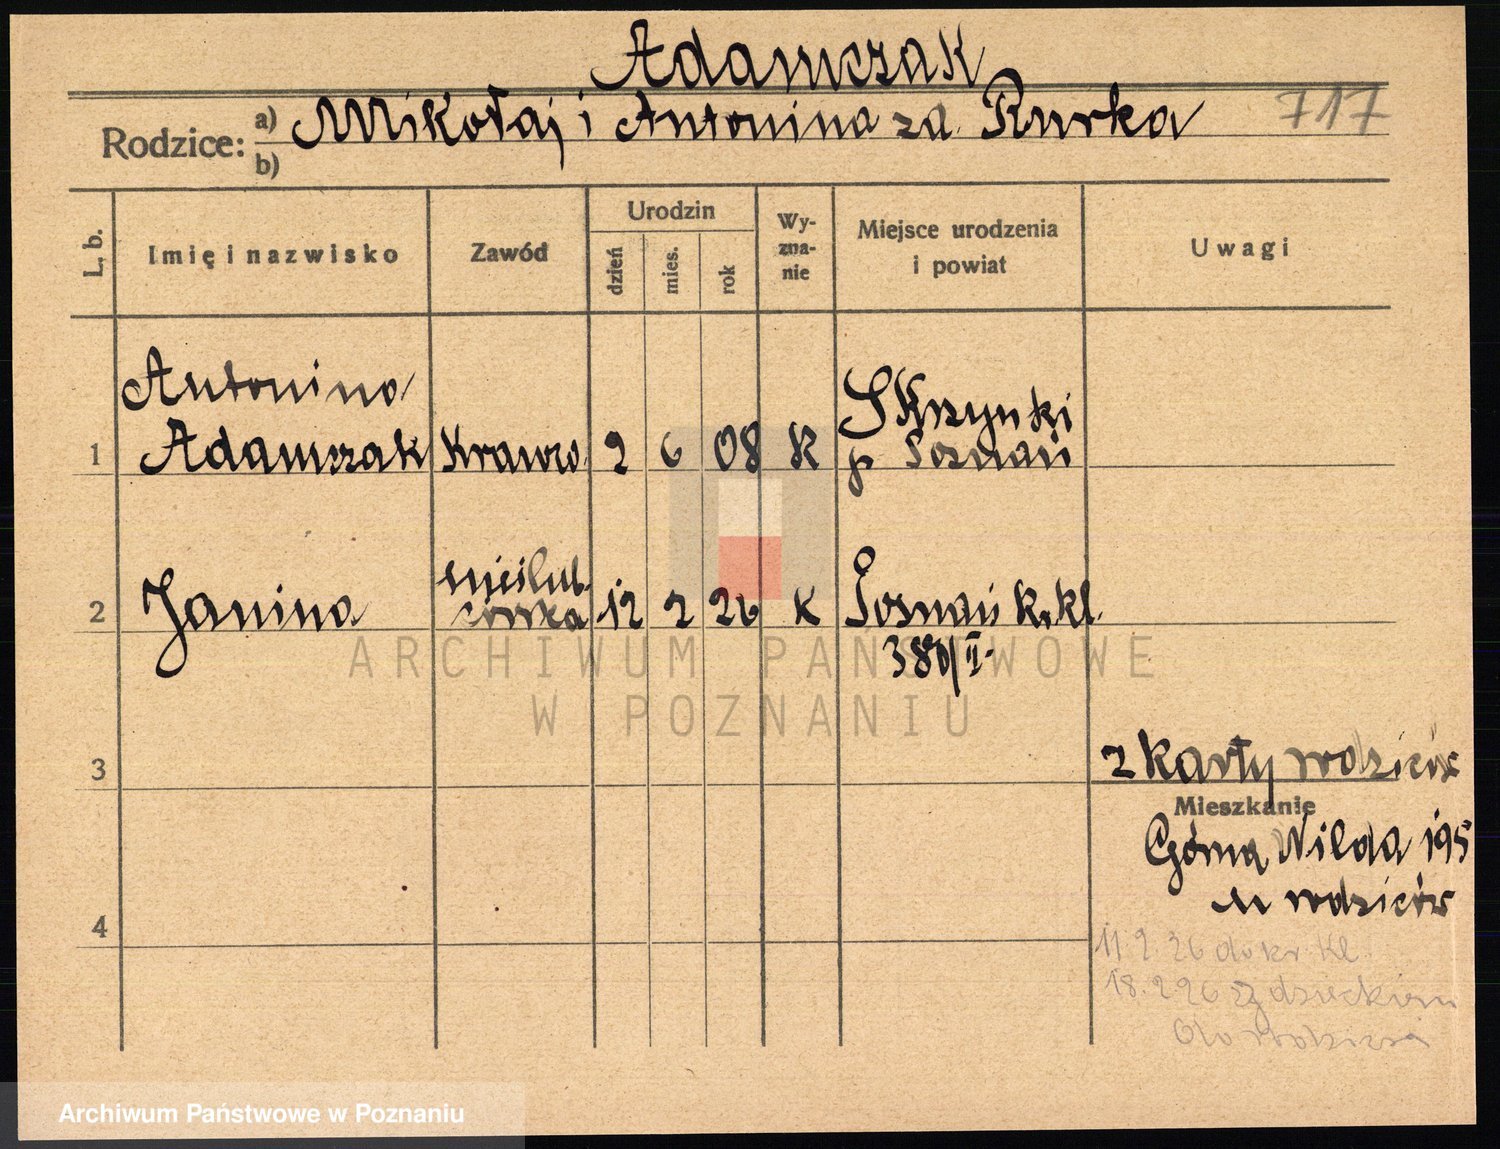 Adamczak
717
Rodzice: a) Mikołaj i Antonina zd. Rurka
b)
L. b.
Imię i nazwisko
Zawód
Urodzin
dzień
mies.
rok
Wy-
zna-
nie
Miejsce urodzenia
i powiat
Uwagi
Antonina
1 Adamczak krawco. 2 6 08 K
Skrzynki
p Poznań
nieślub.
2 Janina córka 12 2 26 K Poznań kr. kl.
380/II.
3
z karty rodziców
Mieszkanie
Górna Wilda 195
u rodziców
4
11 2. 26 do kr Kl.
18. 2 26 z dzieckiem
do
ARCHIWUM PAŃSTWOWE
W POZNANIU
Archiwum Państwowe w Poznaniu